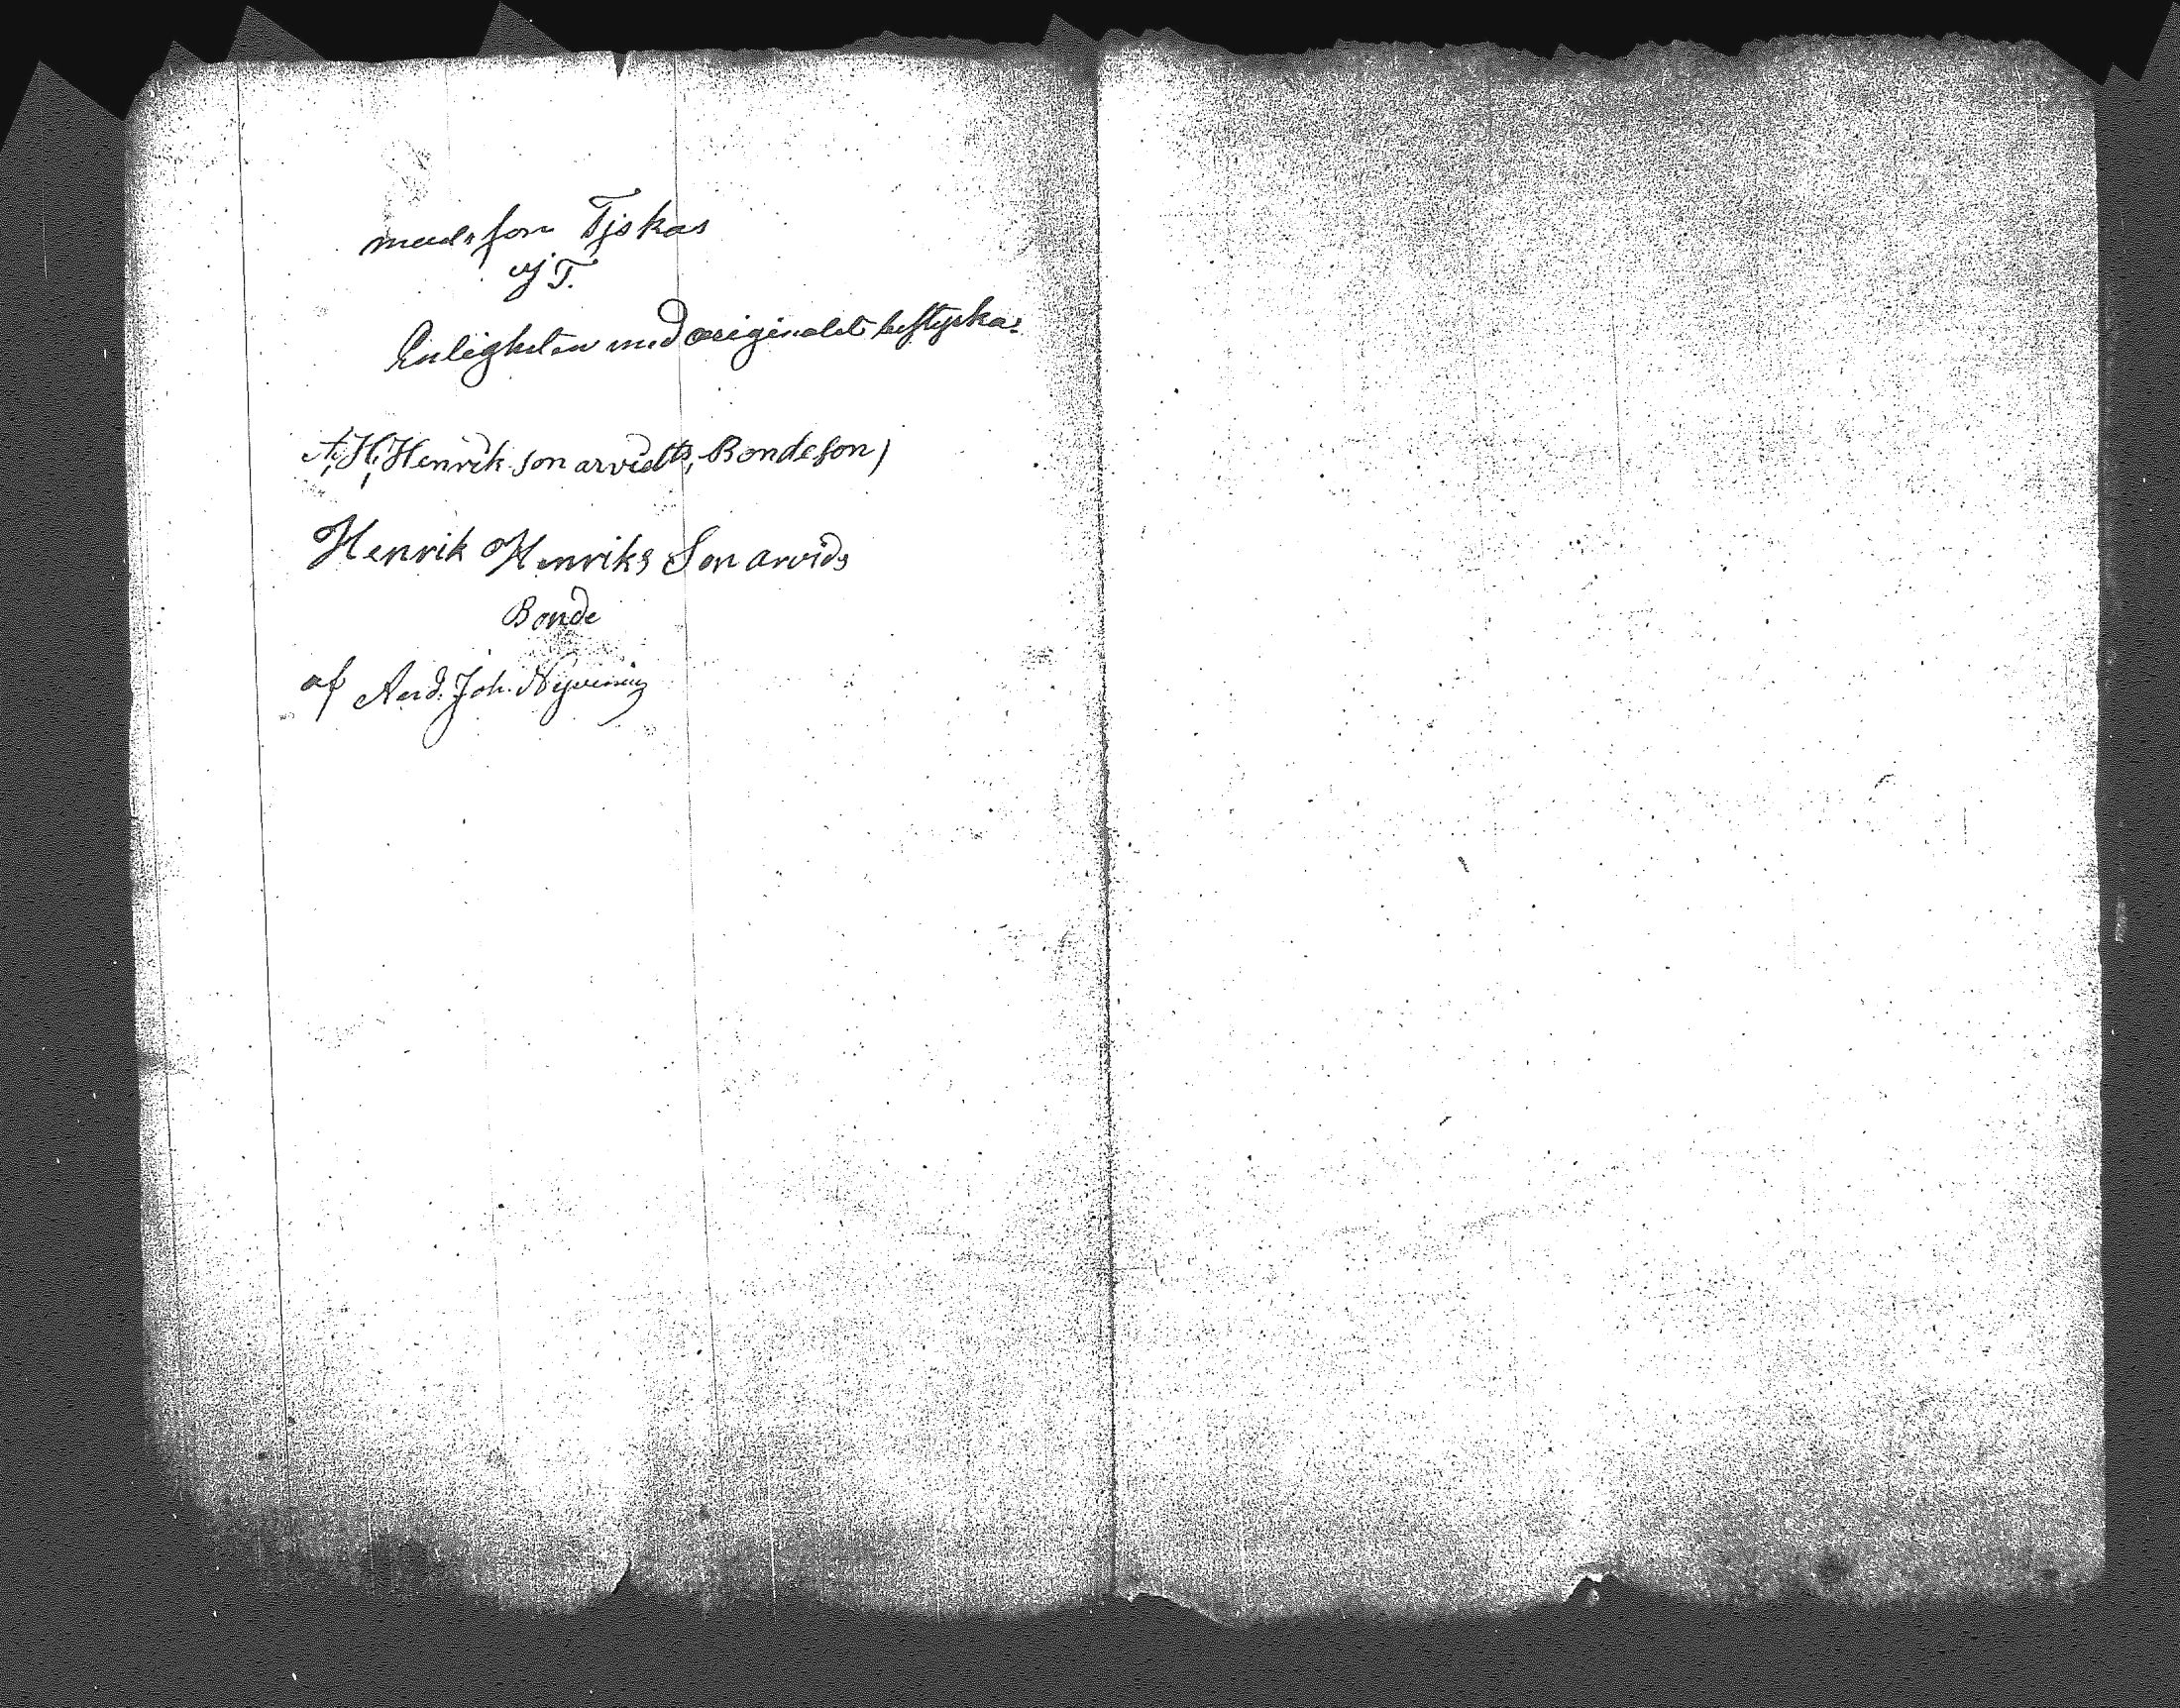 Tjskas
ej T.
Enligheten med originalet bestyrkas
A, H, Henrik son arvidts, Bondeson)
Henrik Henriks Son arvids
Bonde
af And. Joh.